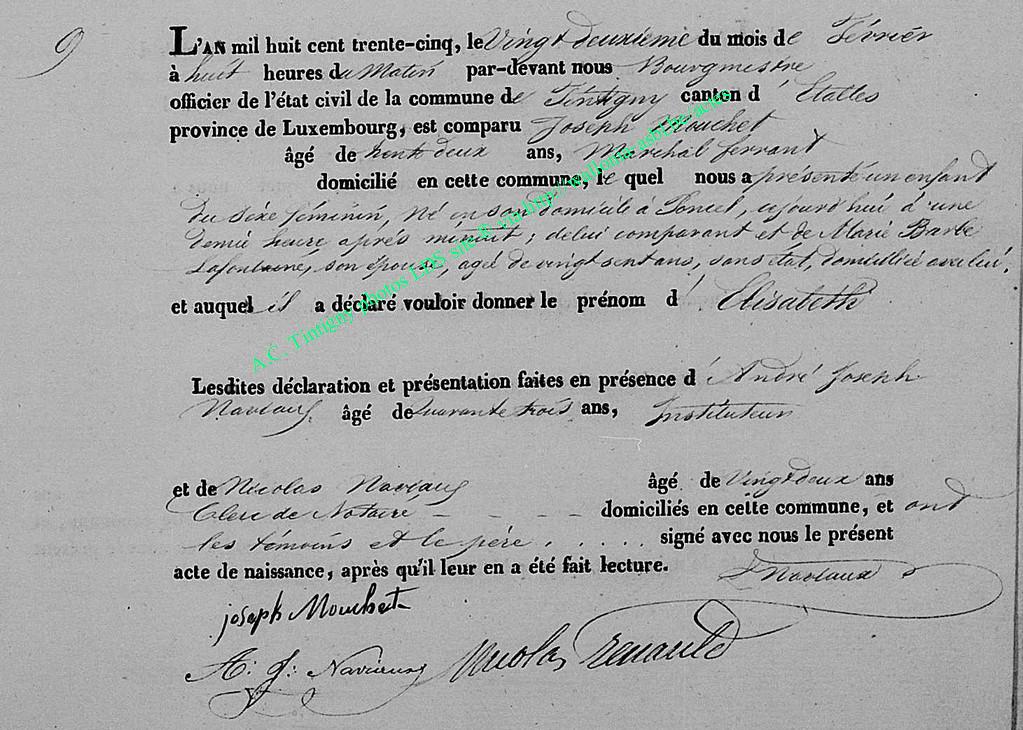 9
L'AN mil huit cent trente-cinq, le Vingt deuxième du mois de Février
à huit heures du Matin par-devant nous Bourgmestre
officier de l'état civil de la commune de Tintigny canton d' Etalles
province de Luxembourg, est comparu Joseph Mouchet
âgé de trente deux ans, Maréchal ferrant
domicilié en cette commune, le quel nous a présenté un enfant
du sexe féminin, né en son domicile à Poncel, cejourd'hui à une
demie heure après minuit; de lui comparant et de Marie Barbe
Lafontaine, son épouse, agée de vingt sept ans, sans état, domiciliée avec lui,
et auquel il a déclaré vouloir donner le prénom d' Elisabeth
Lesdites déclaration et présentation faites en présence d' André Joseph
Naviaux âgé de quarante trois ans, Instituteur
et de Nicolas Naviaux âgé de Vingt deux ans
Clerc de Notaire - - - - domiciliés en cette commune, et ont
les témoins et le père . . . . . signé avec nous le présent
acte de naissance, après qu'il leur en a été fait lecture.
Naviaux
joseph Mouchet
A. J. Naviaux Nicolas Renauld
A.C. Tintigny photos LDS site & via http://wallonia.asbl.be/actes